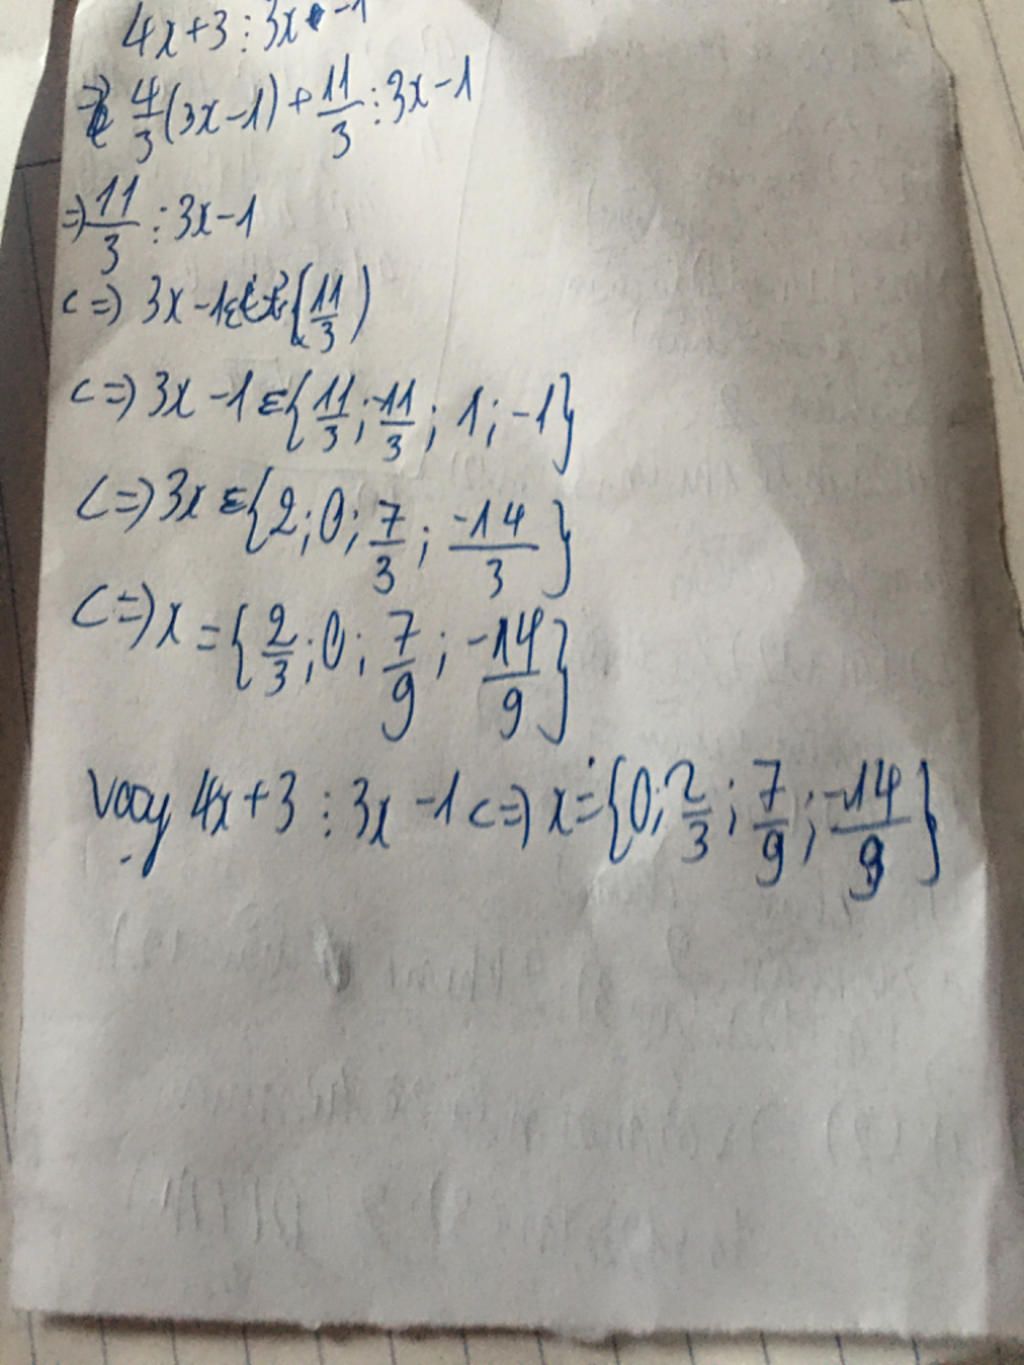 4x+3 ⋮ 3x -1
=> 4/3 (3x-1) + 11/3 ⋮ 3x-1
=> 11/3 ⋮ 3x-1
<=> 3x-1 ε (11/3)
<=> 3x-1 ε {11/3; -11/3; 1; -1}
<=> 3x ε {2; 0; 7/3; -14/3}
<=> x = {2/3; 0; 7/9; -14/9}
Vậy 4x+3 ⋮ 3x-1 <=> x = {0; 2/3; 7/9; -14/9}